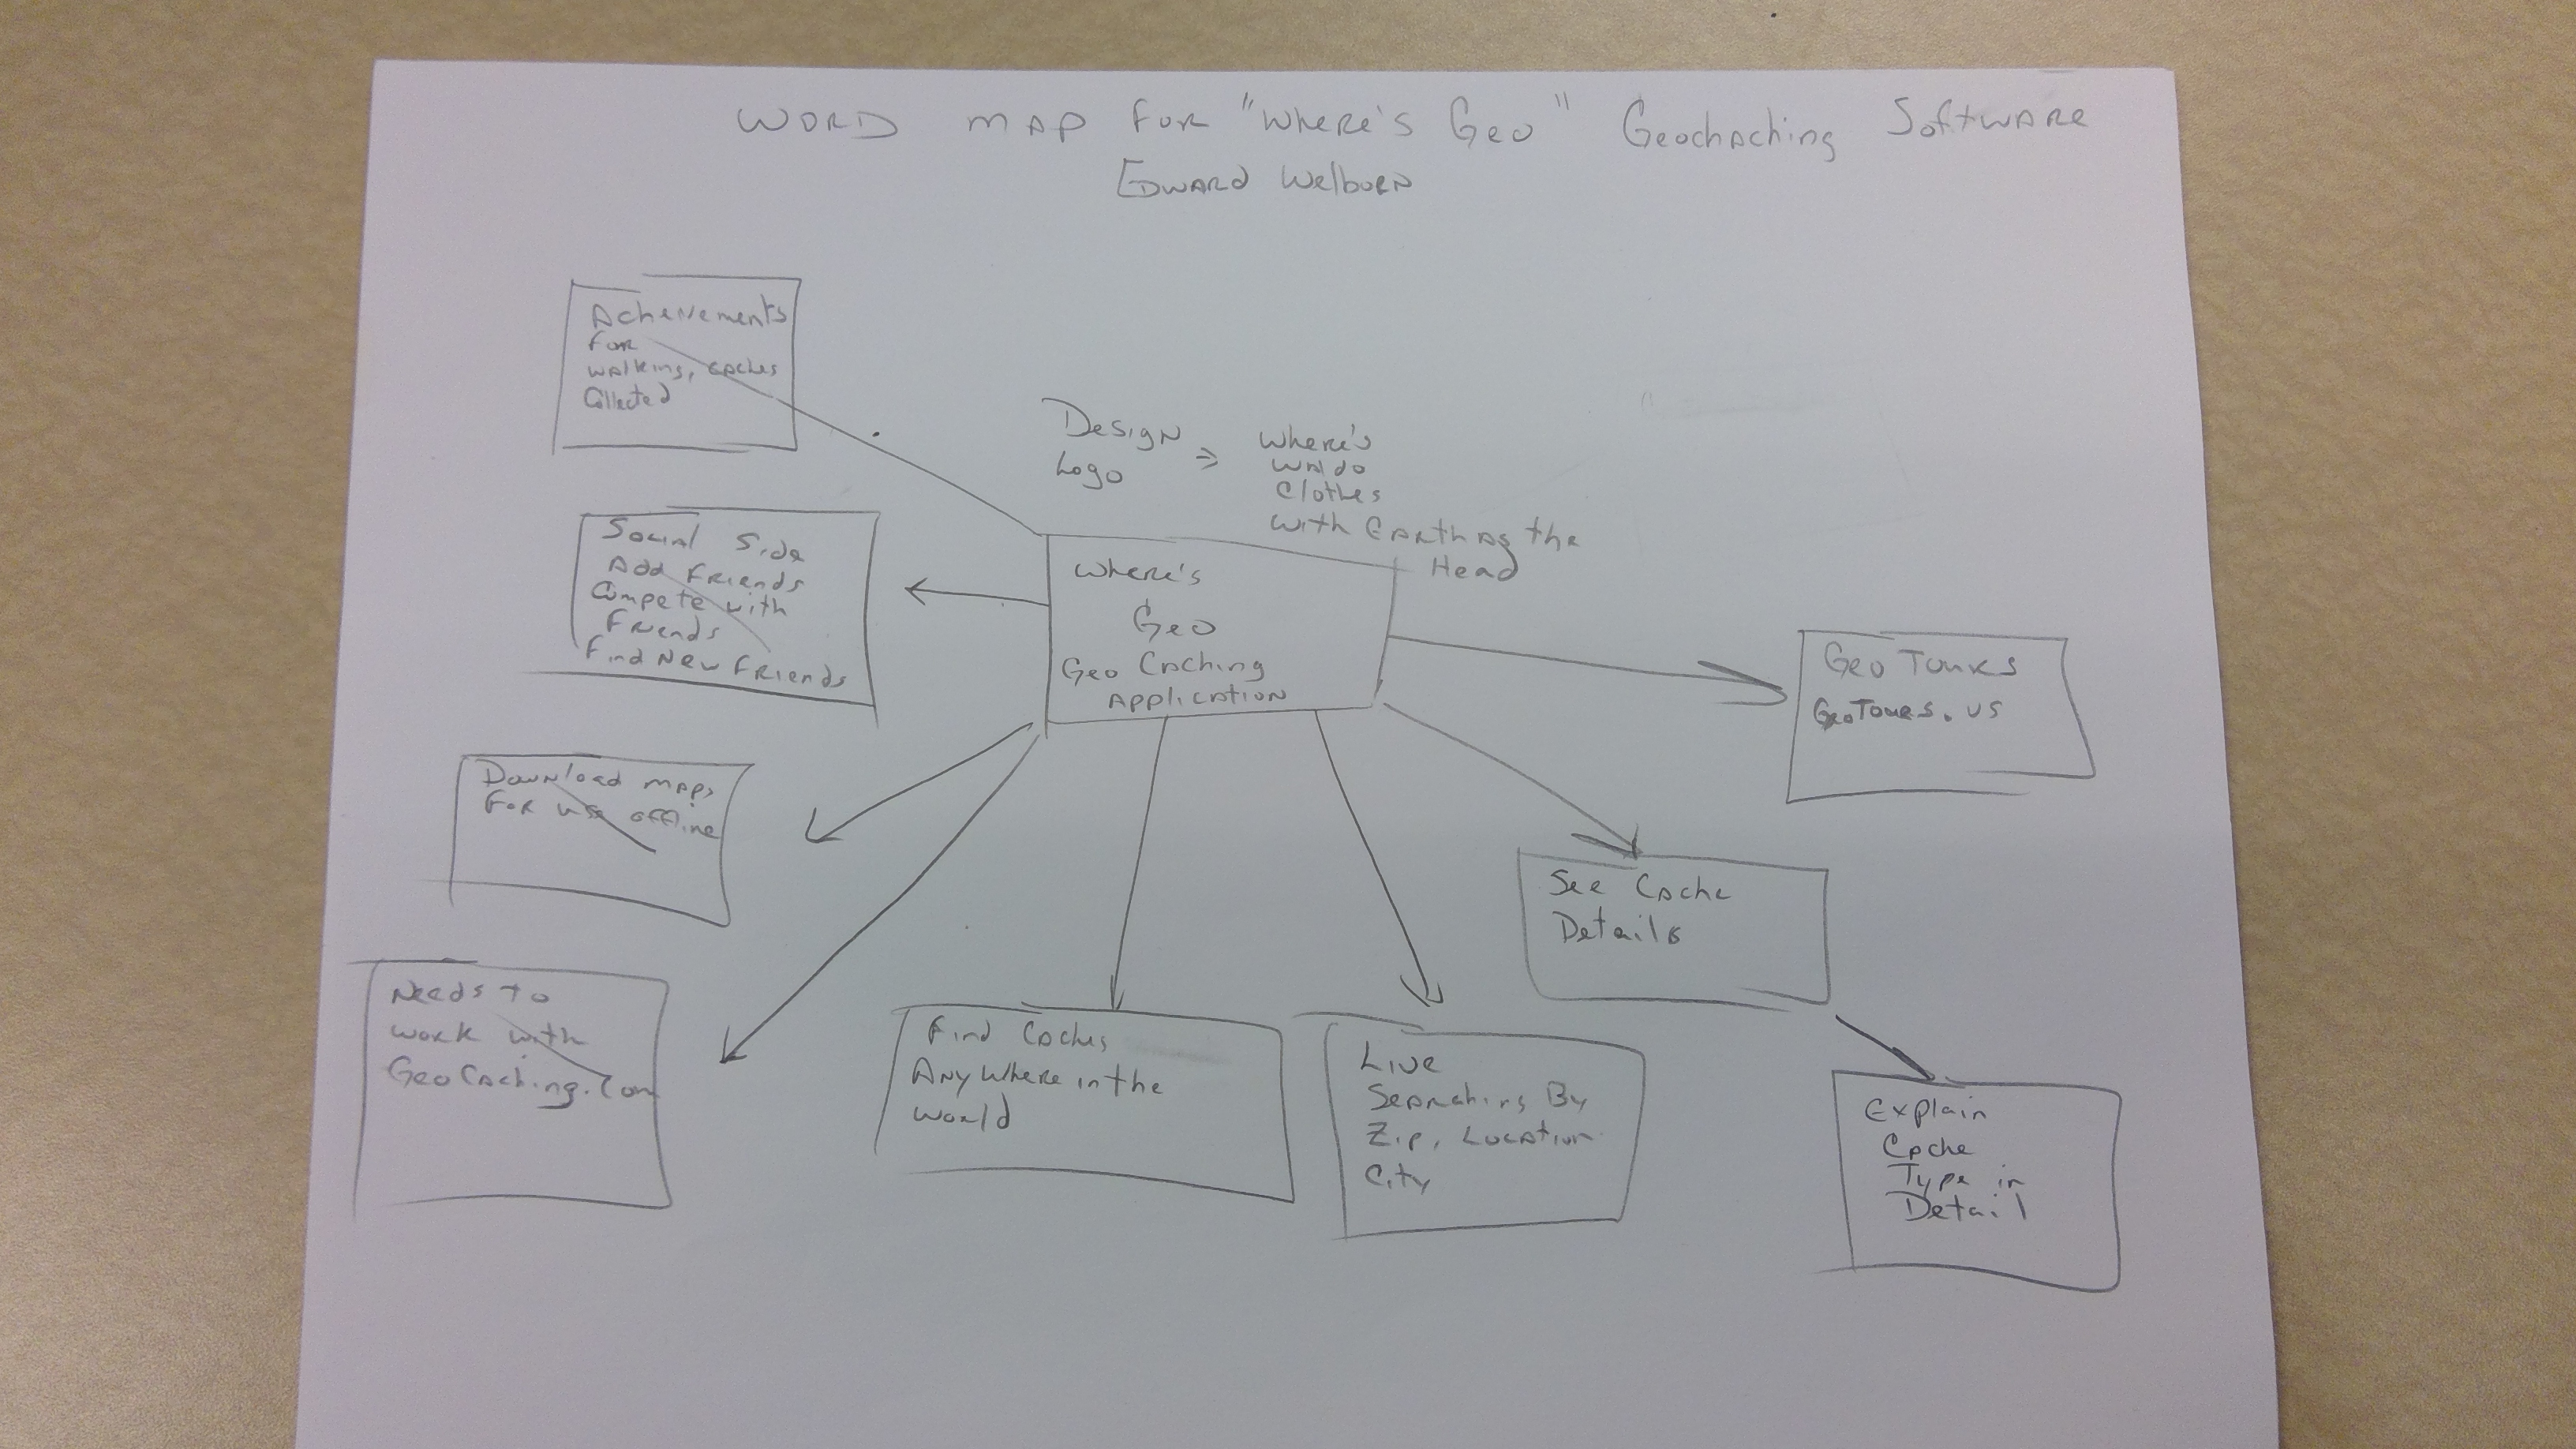 WORD MAP FOR "Where's Geo" Geochaching Software
Edward Welborn
Achevements
For
walking, caches
Collected
Design
Logo
⇒
Where's
Waldo
Clothes
with Earth as the
Head
Social Side
Add Friends
Compete with
Friends
Find New Friends
Where's
Geo
Geo Caching
Application
Geo Tours
GeoTours.us
Download maps
For use offline
See Cache
Details
Needs to
work with
GeoCaching.com
Find Caches
Anywhere in the
World
Live
Searching By
Zip, Location
City
Explain
Cache
Type in
Detail